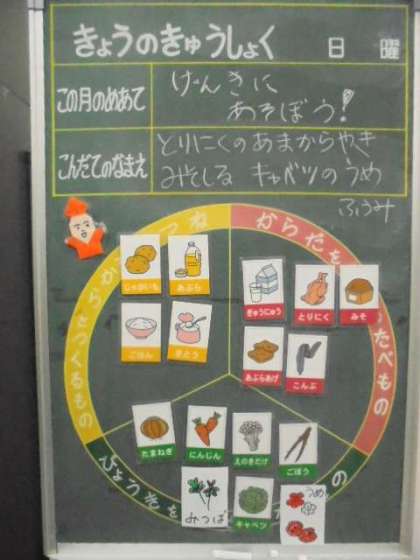 きょうのきゅうしょく 日 曜
この月のめあて
げんきに
あそぼう!
こんだてのなまえ
とりにくのあまからやき
みそしる キャベツのうめ
ふうみ
つね
からだを
たべもの
をつくるもの
じゃがいも
あぶら
ぎゅうにゅう
とりにく
みそ
ごはん
さとう
あぶらあげ
こんぶ
たまねぎ
にんじん
えのきだけ
ごぼう
みつば
キャベツ
うめ